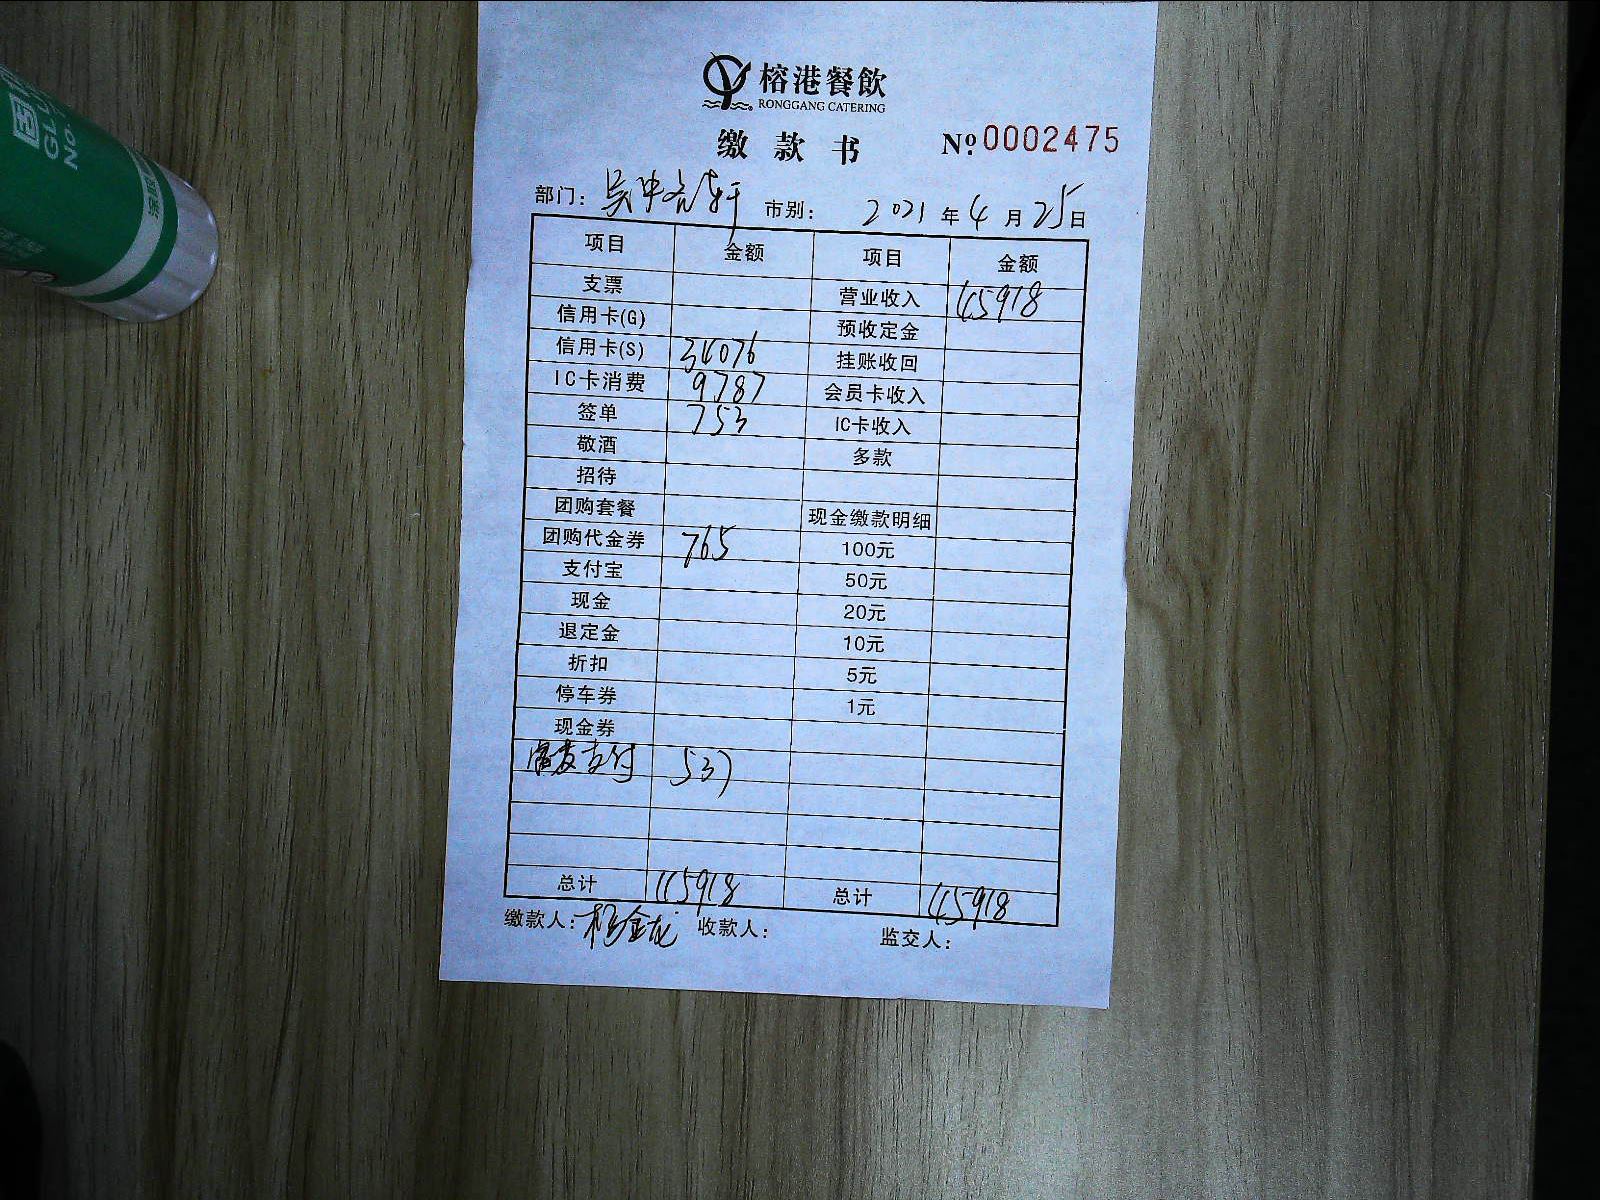 榕港餐飲
RONGGANG CATERING
缴款书 Nº 0002475
部门: 吴中 轩 市别: 2021年4月25日
项目 金额 项目 金额
支票 营业收入 45918
信用卡(G) 预收定金
信用卡(S) 34076 挂账收回
IC卡消费 9787 会员卡收入
签单 753 IC卡收入
敬酒 多款
招待
团购套餐 现金缴款明细
团购代金券 765 100元
支付宝 50元
现金 20元
退定金 10元
折扣 5元
停车券 1元
现金券
支付 537
总计 45918 总计 45918
缴款人: 杨金龙 收款人: 监交人: